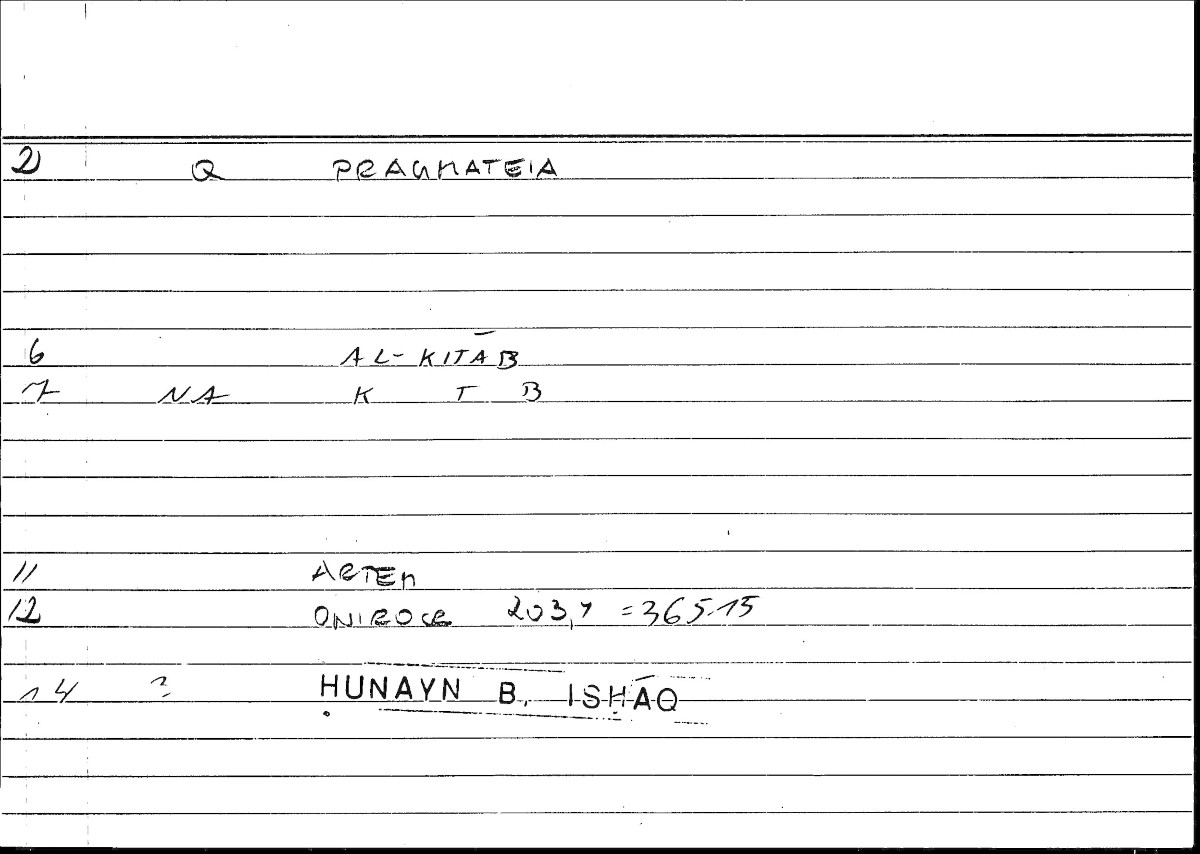 2 Q PRAGMATEIA
6 AL-KITĀB
7 NA K T B
11 ARTEM
12 ONIROCR 203,7 = 365.15
14 ? ḤUNAYN B. ISḤĀQ